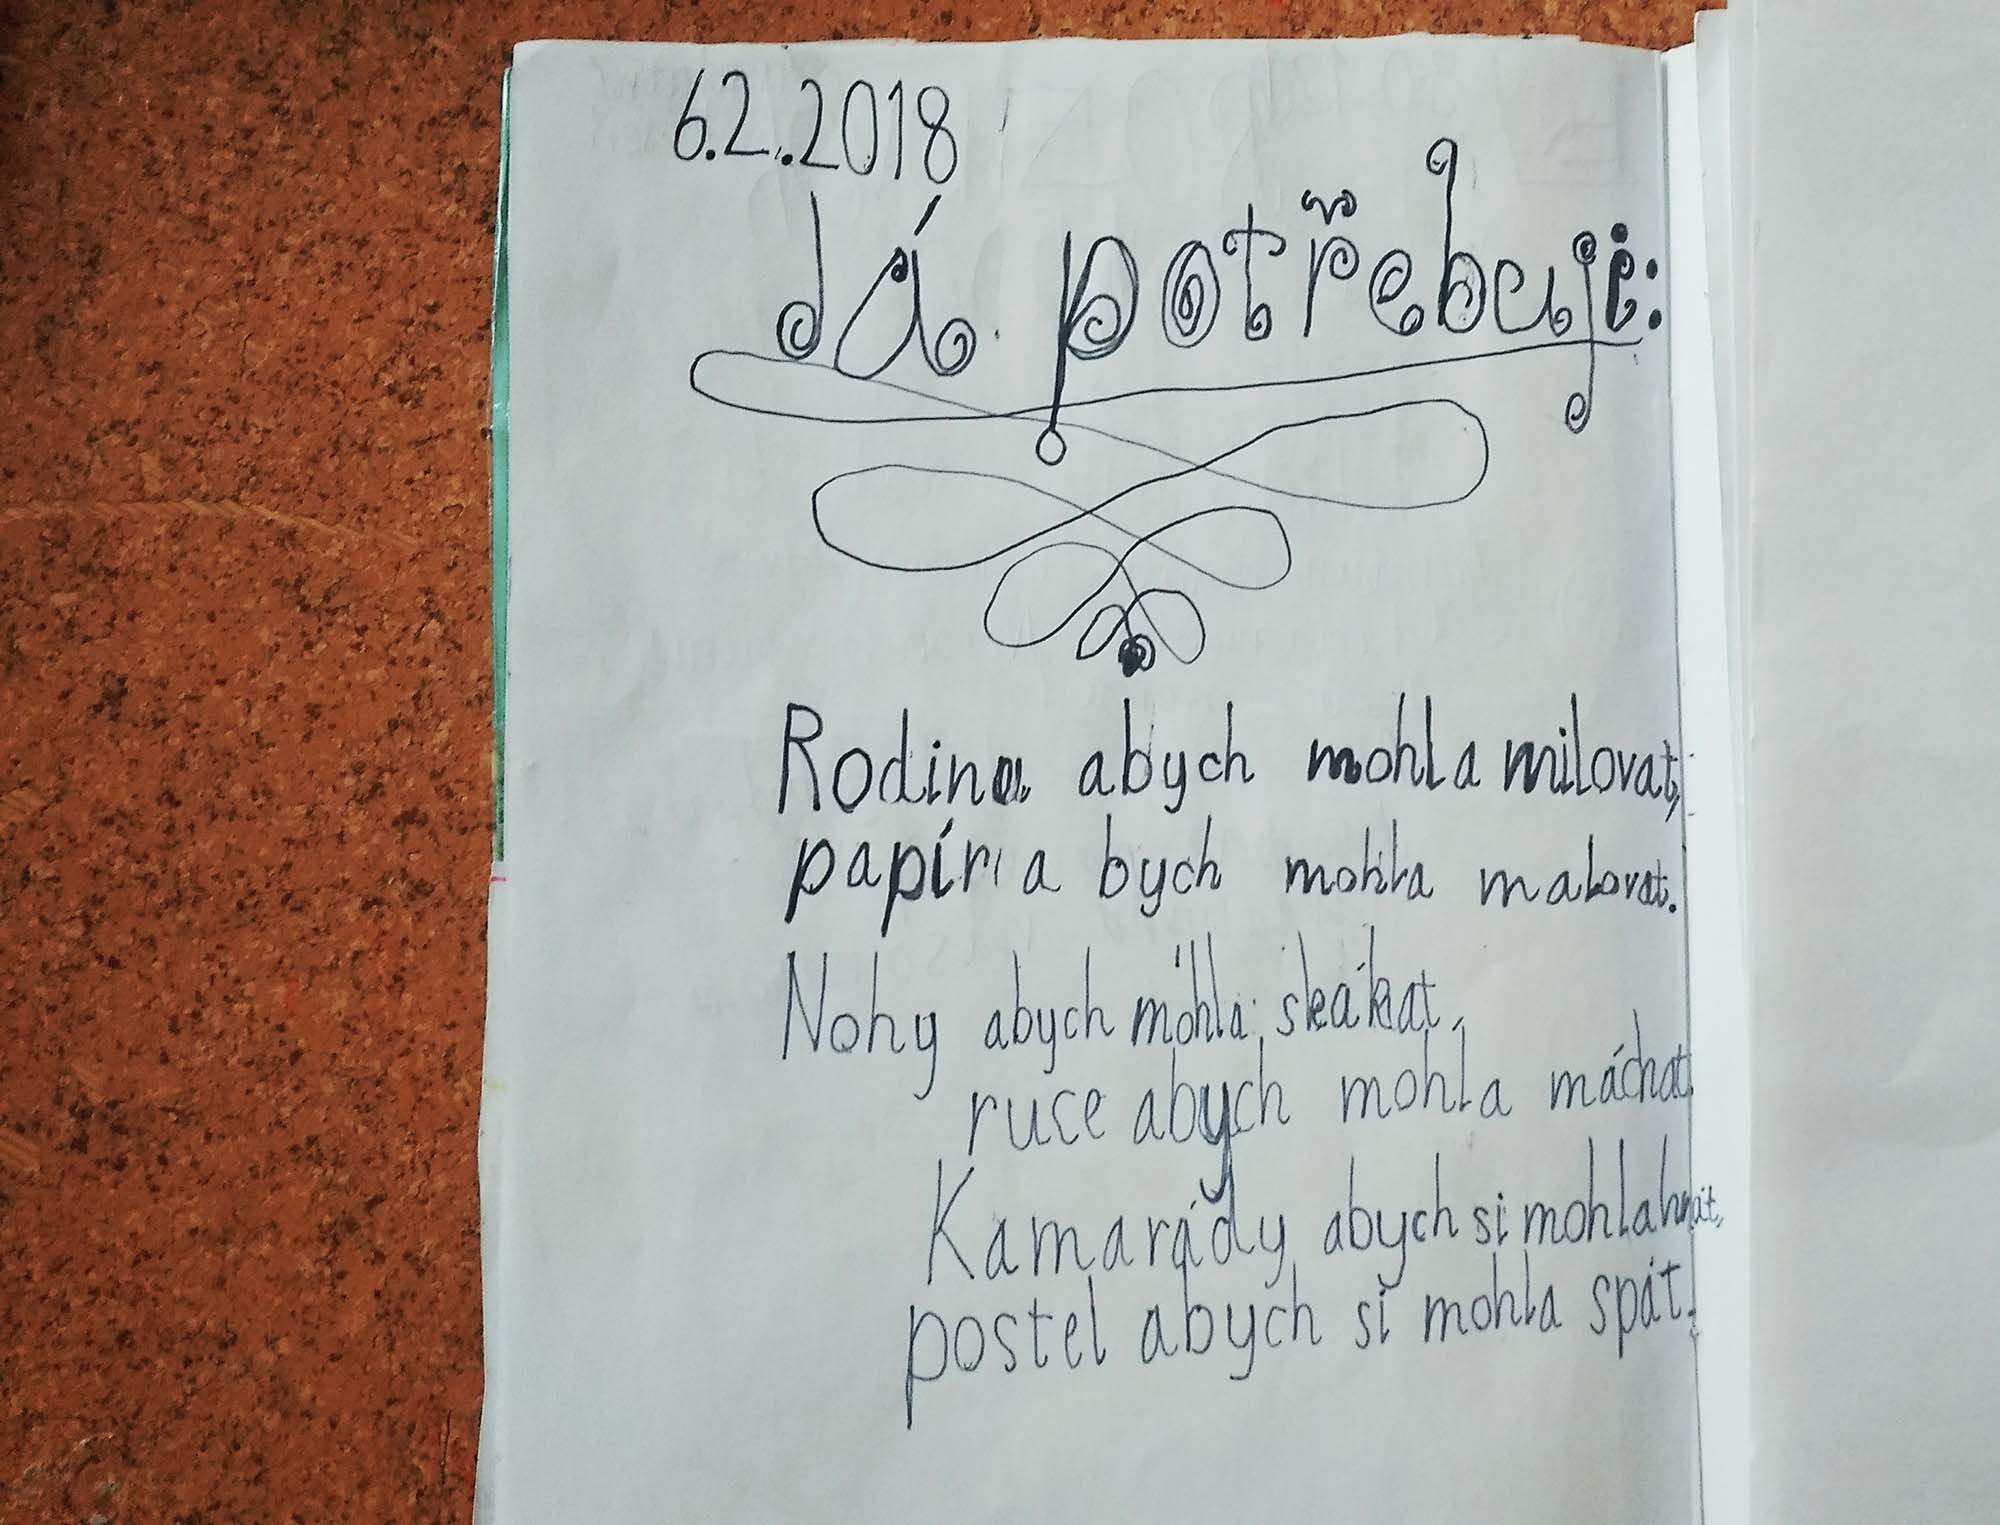 6.2.2018
Já potřebuji:
Rodinu abych mohla milovat,
papír a bych mohla malovat.
Nohy abych mohla skákat,
ruce abych mohla máchat.
Kamarády abych si mohla hrát,
postel abych si mohla spát.